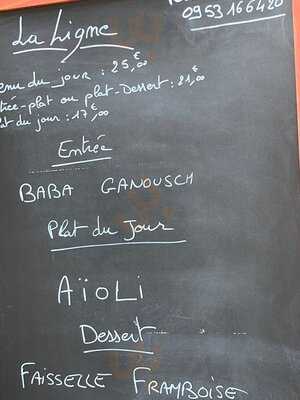 0953166420
La Ligne
enu du jour : 25,00€
trée-plat ou plat-Dessert : 21,00€
at du jour : 17,00€
Entrée
BABA GANOUSCH
Plat du Jour
AïoLi
Dessert
FAISSELLE FRAMBOISE